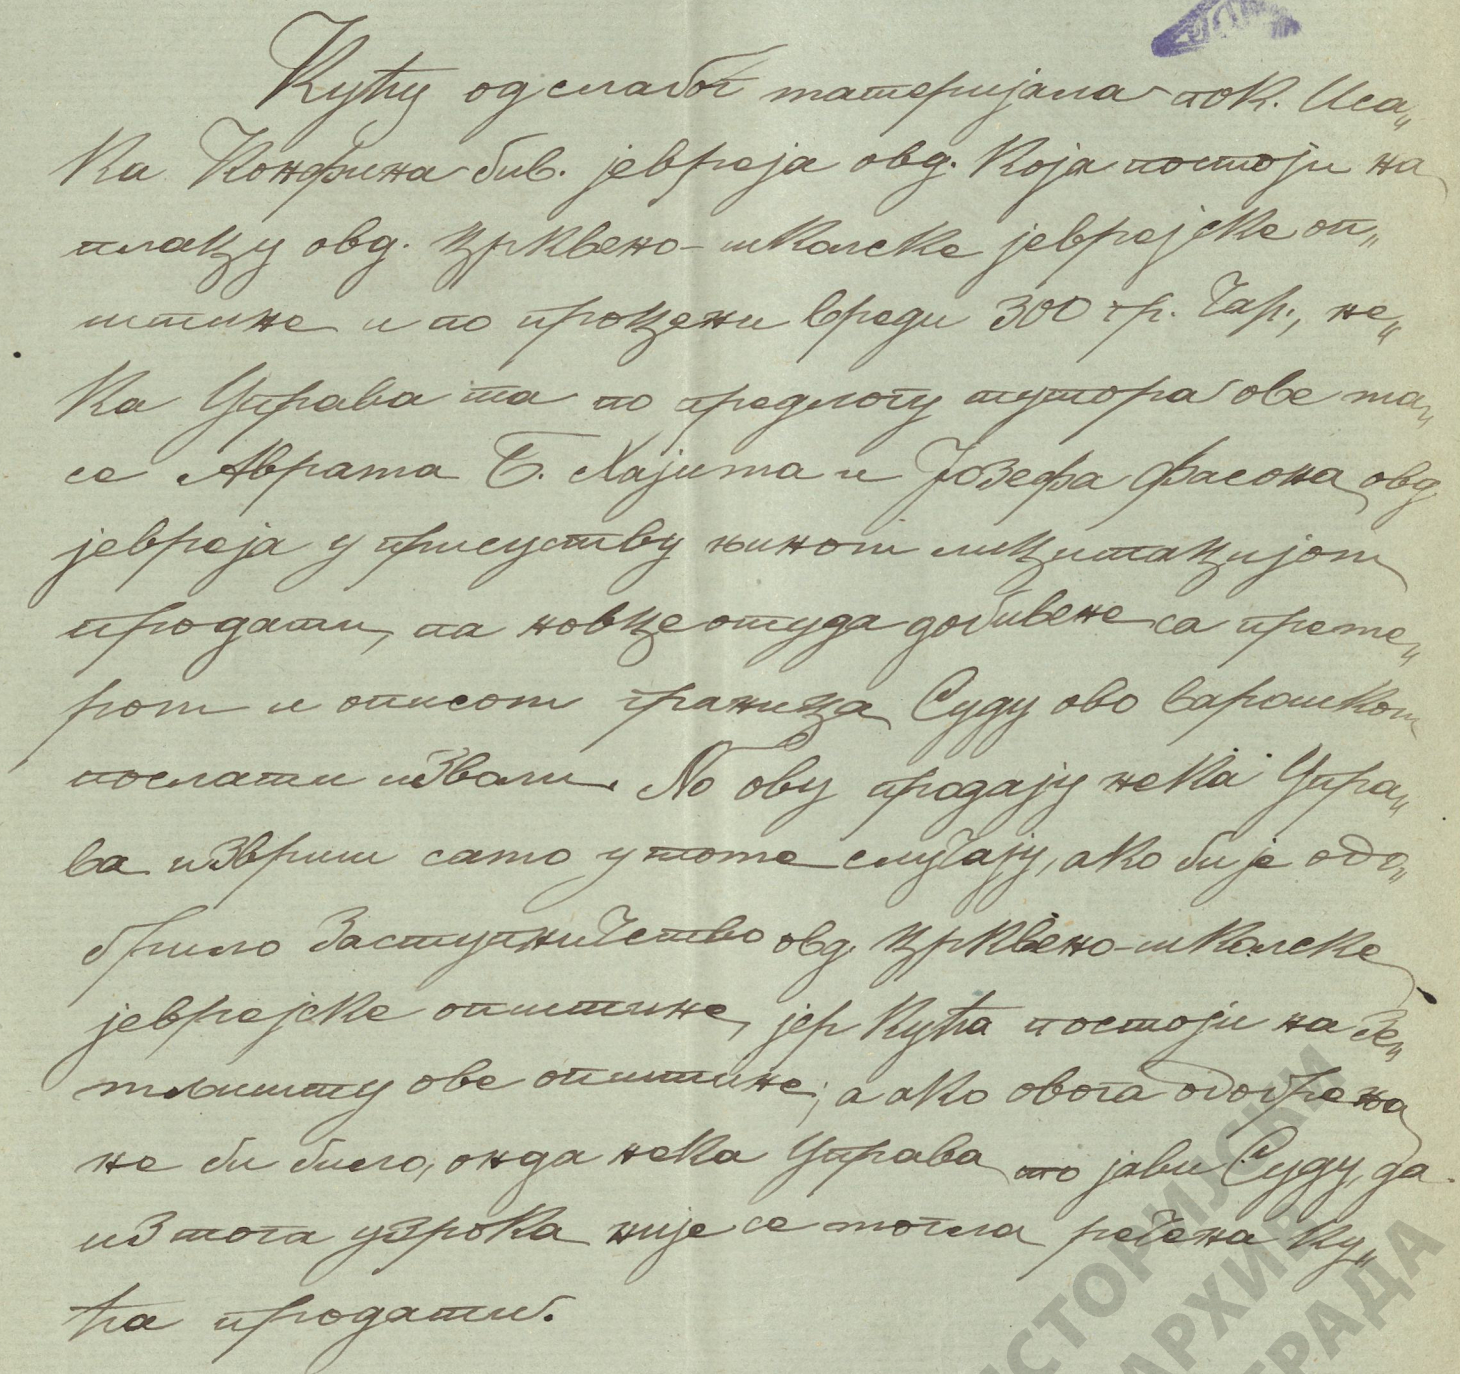 Кућу од слабог материјала пок. Иса„
ка Конфина бив. јевреја овд. која постоји на
плацу овд. црквено-школске јеврејске оп„
штине и по процени вреди 300 гр. чар., не„
ка Управа та по предлогу тутора ове ма„
се Аврама Б. Хајима и Јозефа Фасона овд.
јевреја у присуству њином лицитацијом
продати, па новце отуда добивене са преме„
ром и описом граница Суду ово варошком
послати изволи. No ову продају нека Упра„
ва изврши само у томе случају, ако би је одо„
брило Заступничество овд. црквено-школске
јеврејске општине, јер кућа постоји на зе„
мљишту ове општине; а ако овога одобрења
не би било, онда нека Управа то јави Суду, да
из тога узрока није се могла речена ку„
ћа продати.
ИСТОРИЈСКИ
АРХИВ
ГРАДА